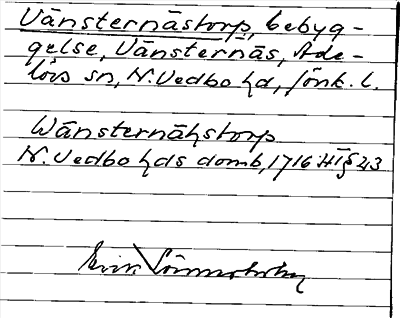 Vänsternästorp, bebyg-
gelse, Vänsternäs, Ade-
löv sn, N. Vedbo hd, Jönk. l.
Wänsternähstorp
N. Vedbo hds domb, 1716 HT § 43